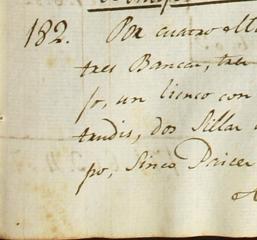 182. Por cuatro
tres Bancas, tres
so, un lienco con
tandis, dos Sillas
po, Sinco Paices